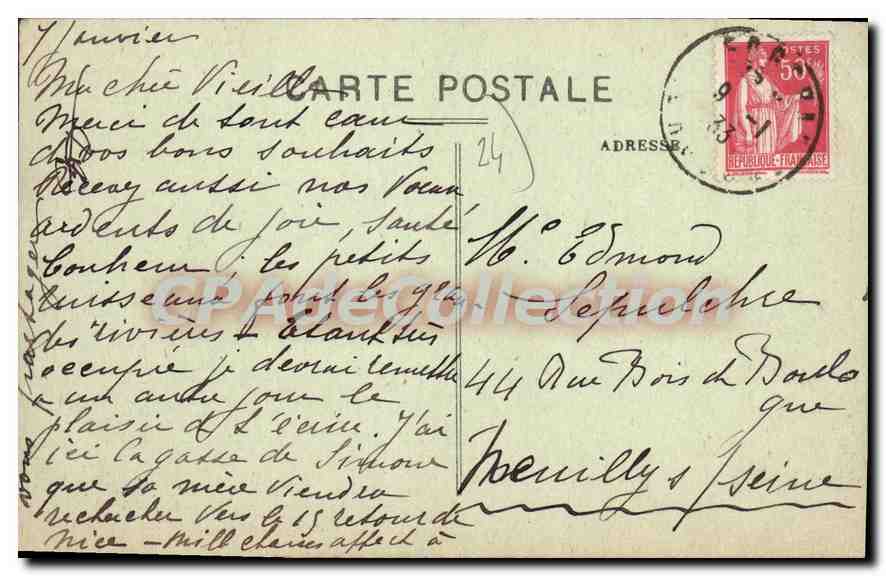 7 Janvier
Ma chère Vieille
Merci de tout cœur
de vos bons souhaits
Recevez aussi nos Vœux
ardents de joie, santé
bonheur, les petits
ruisseaux font les gran-
des rivières - Etant très
occupé je devrai remettre
à un autre jour le
plaisir d t'écrire. J'ai
ici la gosse de Simone
que sa mère viendra
rechercher vers le 15 retour de
Nice - Mill choses affect à
vous partager
CARTE POSTALE
24
ADRESSE
POSTES
50c
REPUBLIQUE-FRANÇAISE
9 -1
33
Me Edmond
Sepulchre
44 Rue Bois de Boulo
gne
Neuilly s/seine
CPAdeCollection